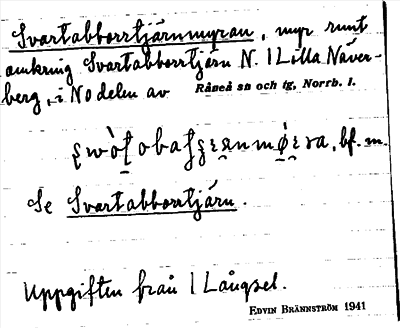 Svartabborrtjärnmyran, myr runt
omkring Svartabborrtjärn N. I Lilla Näver-
berg, i NO delen av Råneå sn och tg, Norrb. l.
bf. m.
Se Svartabborrtjärn.
Uppgiften från I Långsel.
EDVIN BRÄNNSTRÖM 1941